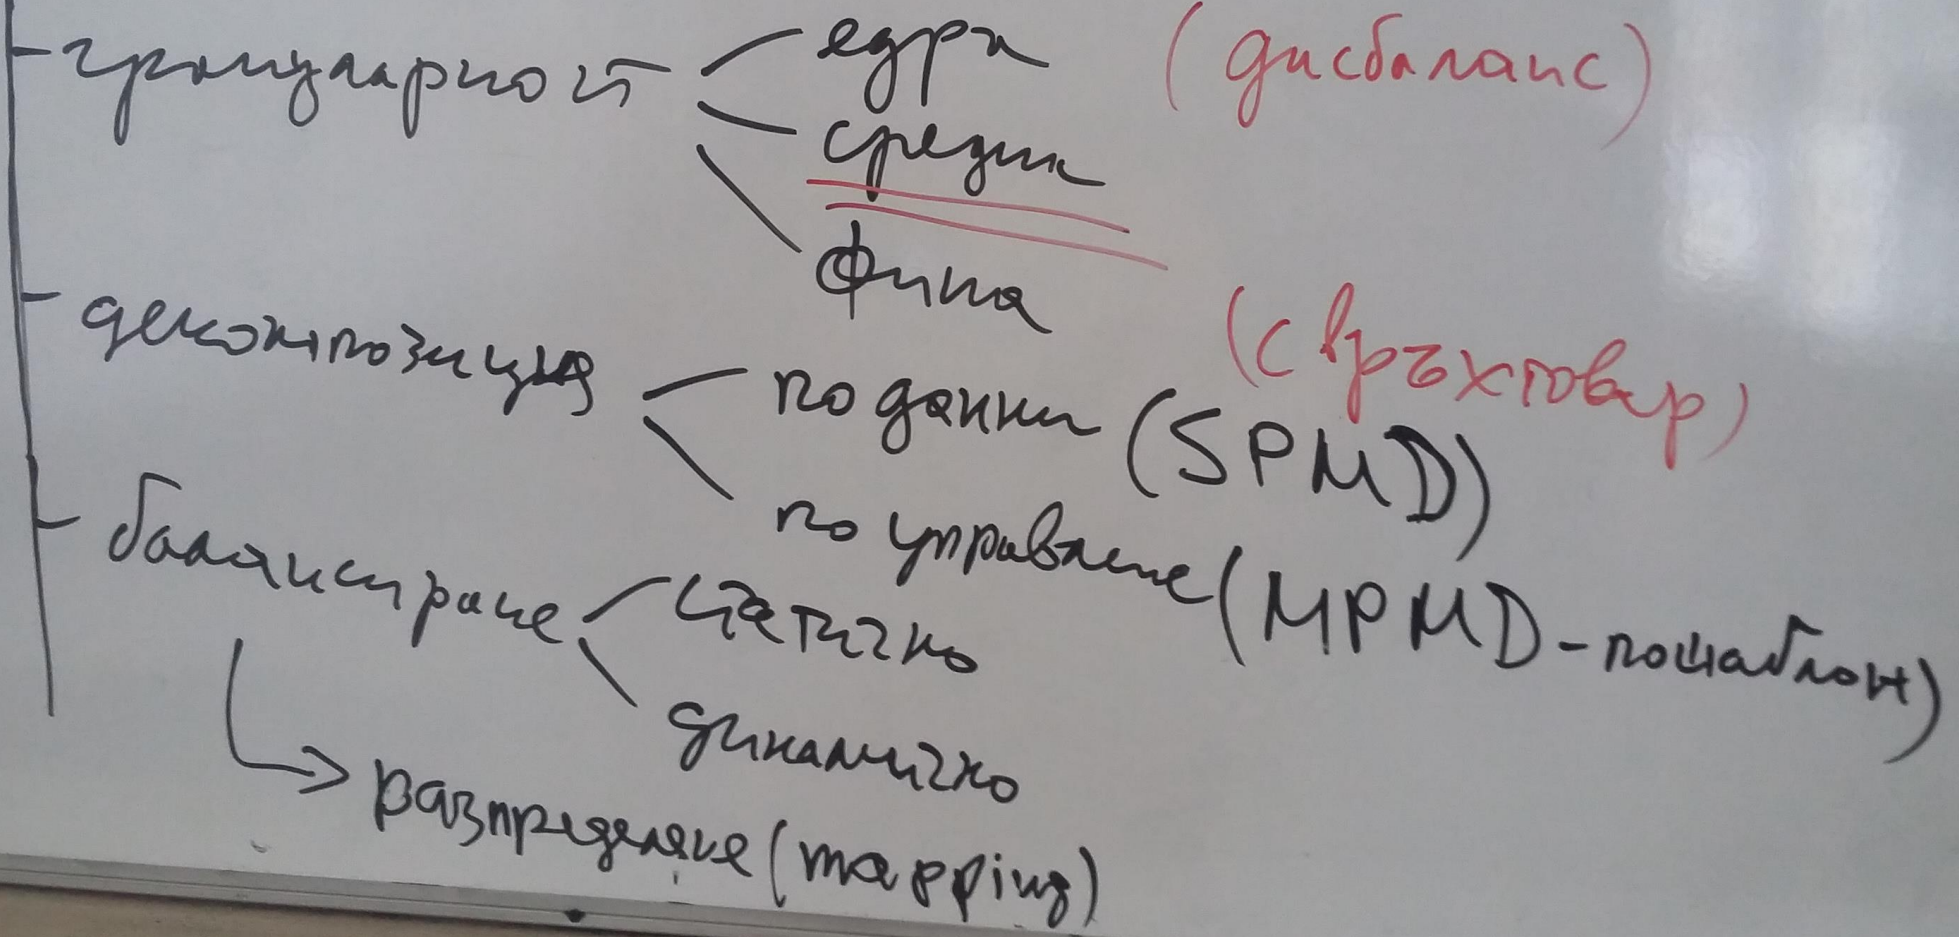 грануларност
едра (дисбаланс)
средна
фина (свръхтовар)
декомпозиция
по данни (SPMD)
по управление (MPMD - пошаблон)
балансиране
статично
динамично
разпределяне (mapping)